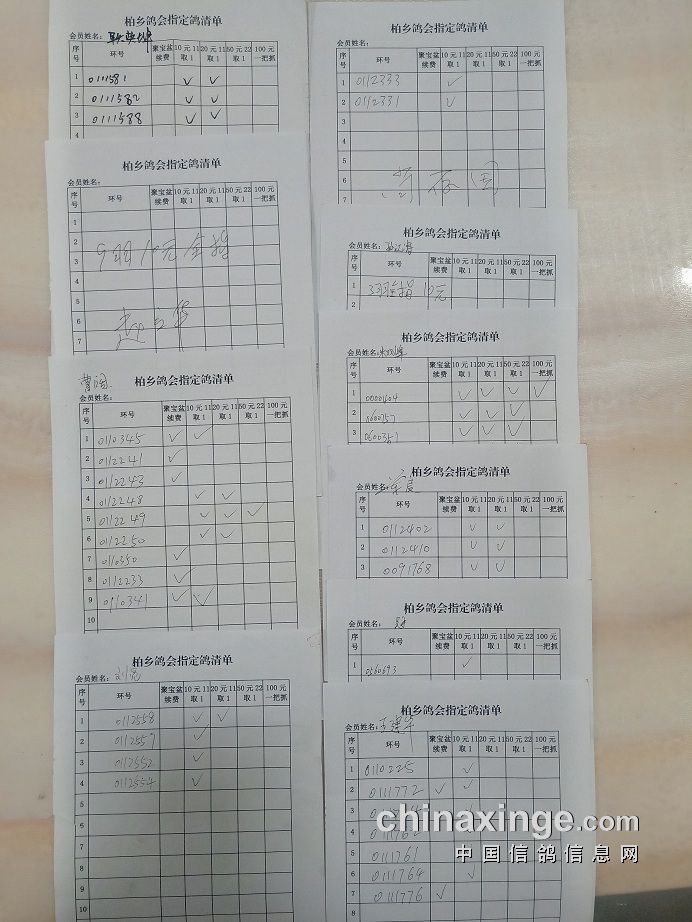 柏乡鸽会指定鸽清单
会员姓名：
序号 环号 聚宝盆续费 10元11取1 20元11取1 50元22取1 100元一把抓
1 0111581 ✓ ✓
2 0111582 ✓ ✓
3 0111588 ✓ ✓
4
柏乡鸽会指定鸽清单
会员姓名：
序号 环号 聚宝盆续费 10元11取1 20元11取1 50元22取1 100元一把抓
1
2
3
9羽10元全指
4
5
6
7
柏乡鸽会指定鸽清单
会员姓名：
序号 环号 聚宝盆续费 10元11取1 20元11取1 50元22取1 100元一把抓
1 0110345 ✓ ✓
2 0112241 ✓
3 0112243 ✓
4 0112248 ✓ ✓
5 0112249 ✓ ✓ ✓
6 0112250 ✓ ✓
7 0110350 ✓
8 0112233 ✓
9 0110341 ✓ ✓
10
柏乡鸽会指定鸽清单
会员姓名：
序号 环号 聚宝盆续费 10元11取1 20元11取1 50元22取1 100元一把抓
1 0112558 ✓ ✓
2 0112557 ✓
3 0112552 ✓
4 0112554 ✓
5
6
7
8
9
10
柏乡鸽会指定鸽清单
会员姓名：
序号 环号 聚宝盆续费 10元11取1 20元11取1 50元22取1 100元一把抓
1 0112333 ✓
2 0112331 ✓
3
4
5
6
7
柏乡鸽会指定鸽清单
会员姓名：
序号 环号 聚宝盆续费 10元11取1 20元11取1 50元22取1 100元一把抓
1 10元
2
柏乡鸽会指定鸽清单
会员姓名：
序号 环号 聚宝盆续费 10元11取1 20元11取1 50元22取1 100元一把抓
1 0000604 ✓ ✓ ✓ ✓
2 0600757 ✓ ✓ ✓
3 ✓ ✓ ✓
柏乡鸽会指定鸽清单
会员姓名：
序号 环号 聚宝盆续费 10元11取1 20元11取1 50元22取1 100元一把抓
1 0112402 ✓ ✓
2 0112410 ✓ ✓
3 0091768 ✓ ✓
柏乡鸽会指定鸽清单
会员姓名：
序号 环号 聚宝盆续费 10元11取1 20元11取1 50元22取1 100元一把抓
1 0560693 ✓
柏乡鸽会指定鸽清单
会员姓名：王建华
序号 环号 聚宝盆续费 10元11取1 20元11取1 50元22取1 100元一把抓
1 0110225 ✓
2 0111772 ✓ ✓
3
4
5 0111761
6 0111764 ✓
7 0111776 ✓
8
chinaxinge.com
中国信鸽信息网